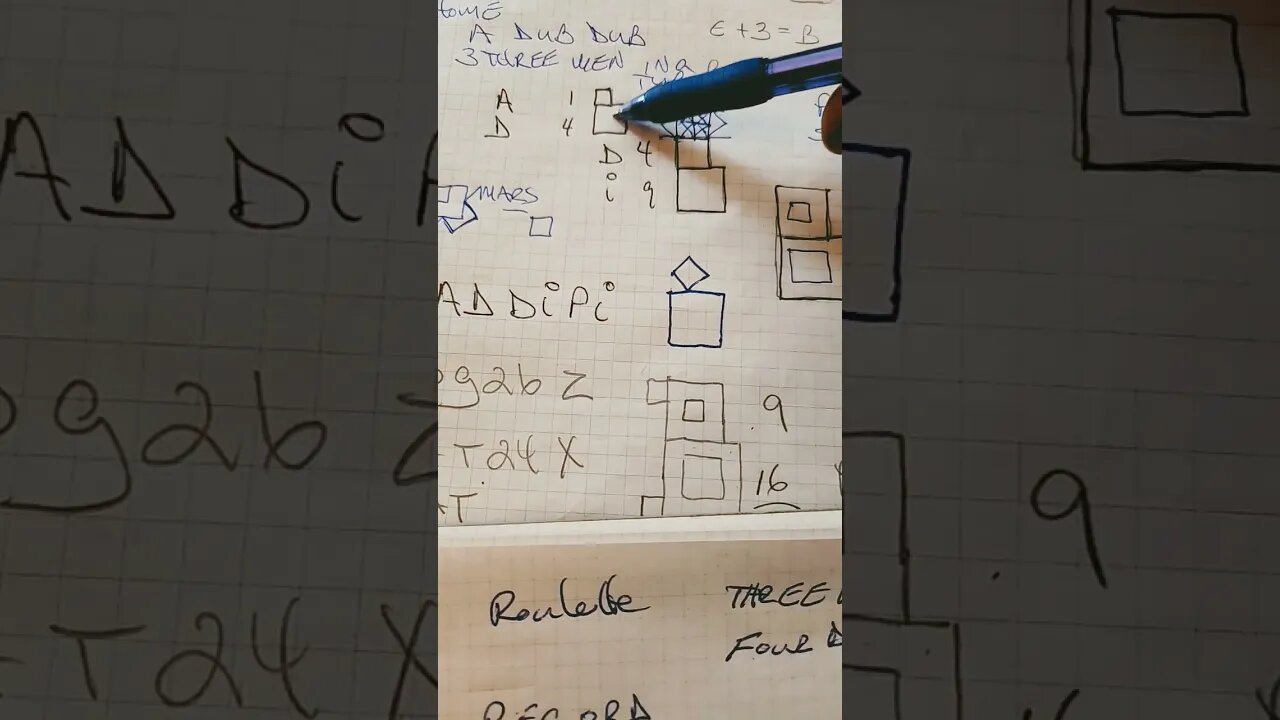 A DUB DUB
E + 3 = B
3 THREE MEN IN a
A 1
D 4
D 4
i 9
MARS
ADDiPi
g2b Z
9
T24 X
16
T
Roulette
THREE
FOUR D
RECORD